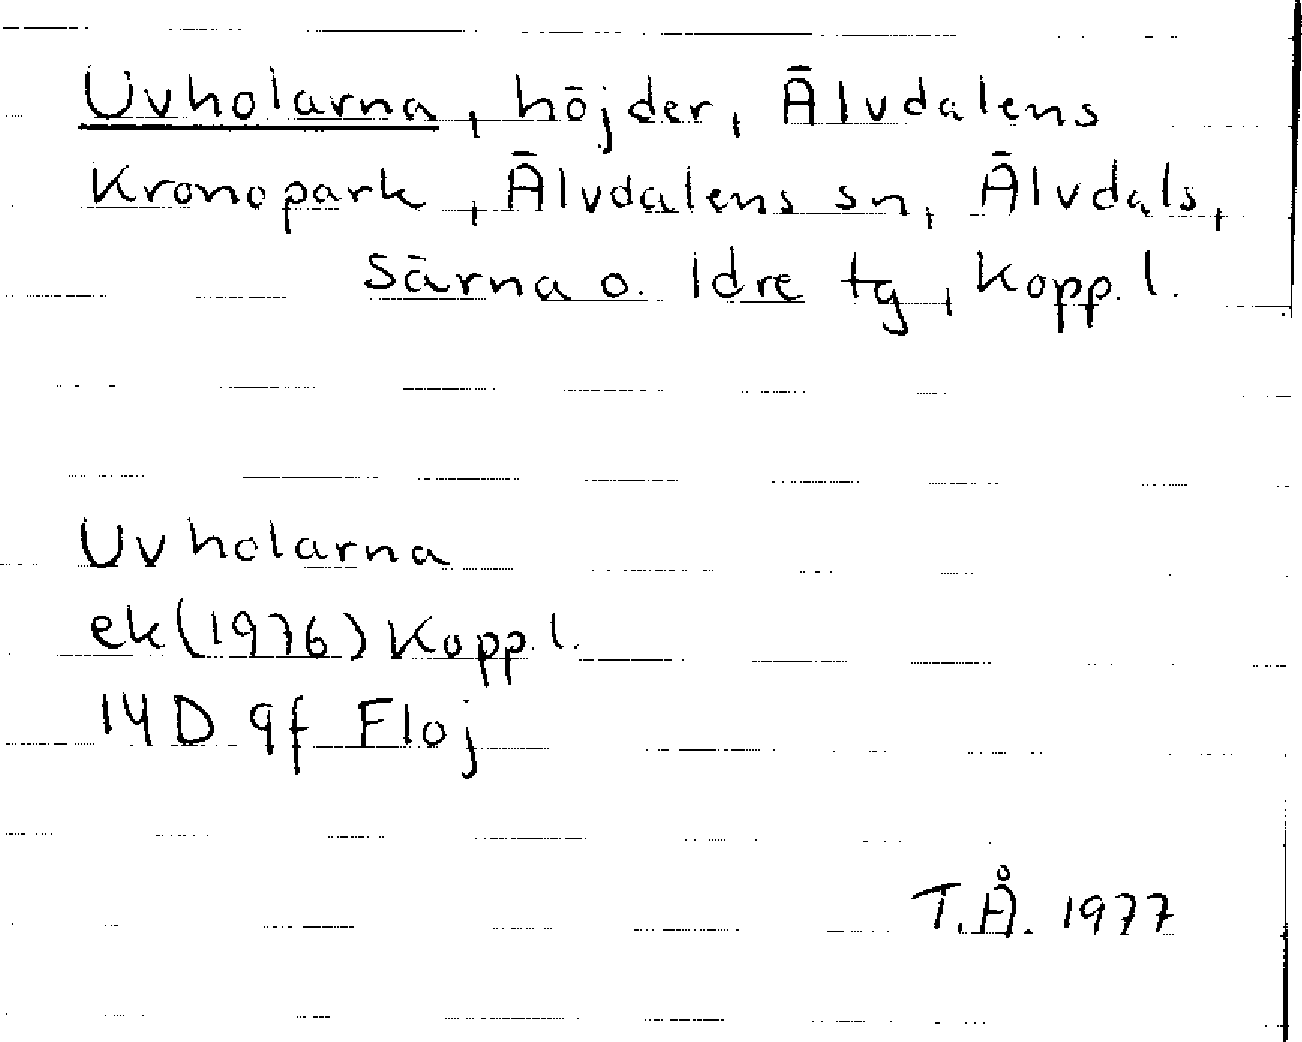 Uvholarna, höjder, Älvdalens
Kronopark, Älvdalens sn, Älvdals,
Särna o. Idre tg, Kopp. l.
Uvholarna
ek (1976) Kopp. l.
14D 9f Floj
T.Å. 1977